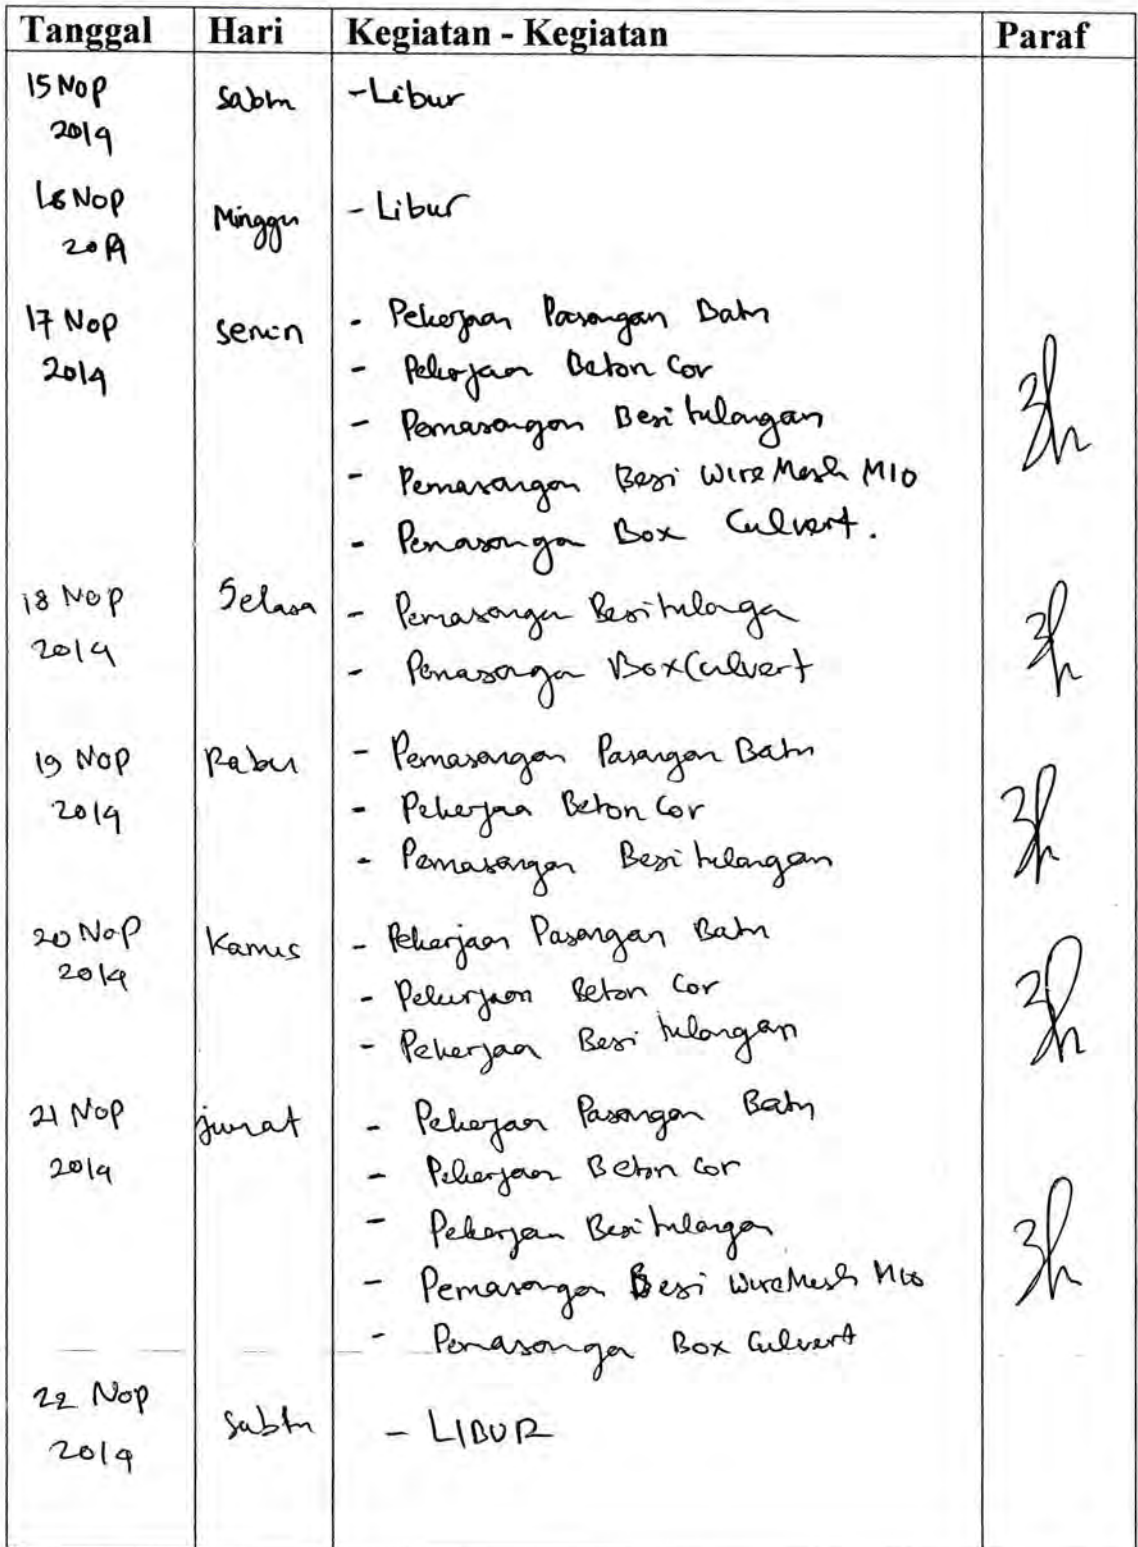 Tanggal Hari Kegiatan - Kegiatan Paraf
15 Nop Sabtu - Libur
2014
16 Nop Minggu - Libur
2014
17 Nop Senin - Pekerjaan Pasangan Batu
2014 - Pekerjaan Beton Cor
- Pemasangan Besi tulangan
- Pemasangan Besi Wire Mesh M10
- Pemasanga Box Culvert.
18 Nop Selasa - Pemasanga Besi tulanga
2014 - Pemasanga Box Culvert
19 Nop Rabu - Pemasangan Pasangan Batu
2014 - Pekerjaa Beton Cor
- Pemasangan Besi tulangan
20 Nop Kamis - Pekerjaan Pasangan Batu
2014 - Pekerjaan Beton Cor
- Pekerjaan Besi tulangan
21 Nop jumat - Pekerjaan Pasangan Batu
2014 - Pekerjaan Beton Cor
- Pekerjaan Besi tulangan
- Pemasangan Besi Wire Mesh M10
- Pemasanga Box Culvert
22 Nop Sabtu - LIBUR
2014